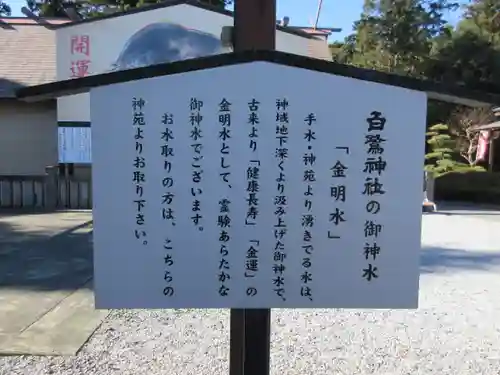 白鷺神社の御神水
「金明水」
手水・神苑より湧きでる水は、
神域地下深くより汲み上げた御神水で、
古来より「健康長寿」「金運」の
金明水として、霊験あらたかな
御神水でございます。
お水取りの方は、こちらの
神苑よりお取り下さい。
開運